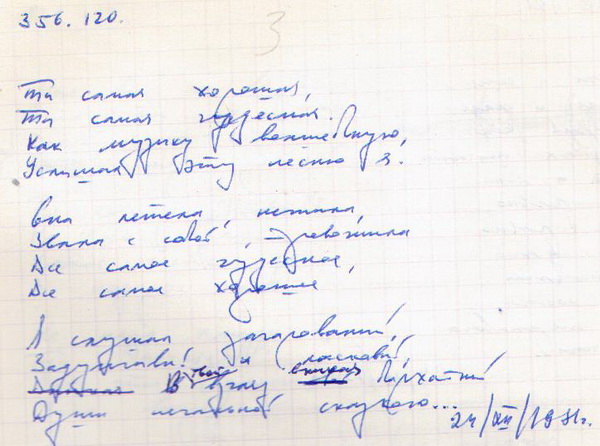 356. 120.
3
Ты самая хорошая,
Ты самая чудесная.
Как музыку волшебную,
Услышал эту песню я.
Она летела, нежила,
Звала с собой, тревожила
Все самое чудесное,
Все самое хорошее,
Я слушал зачарованный,
Задумчивый и ласковый,
В глазах бархатный
Души печальной сказкою...
24/XII/1981г.